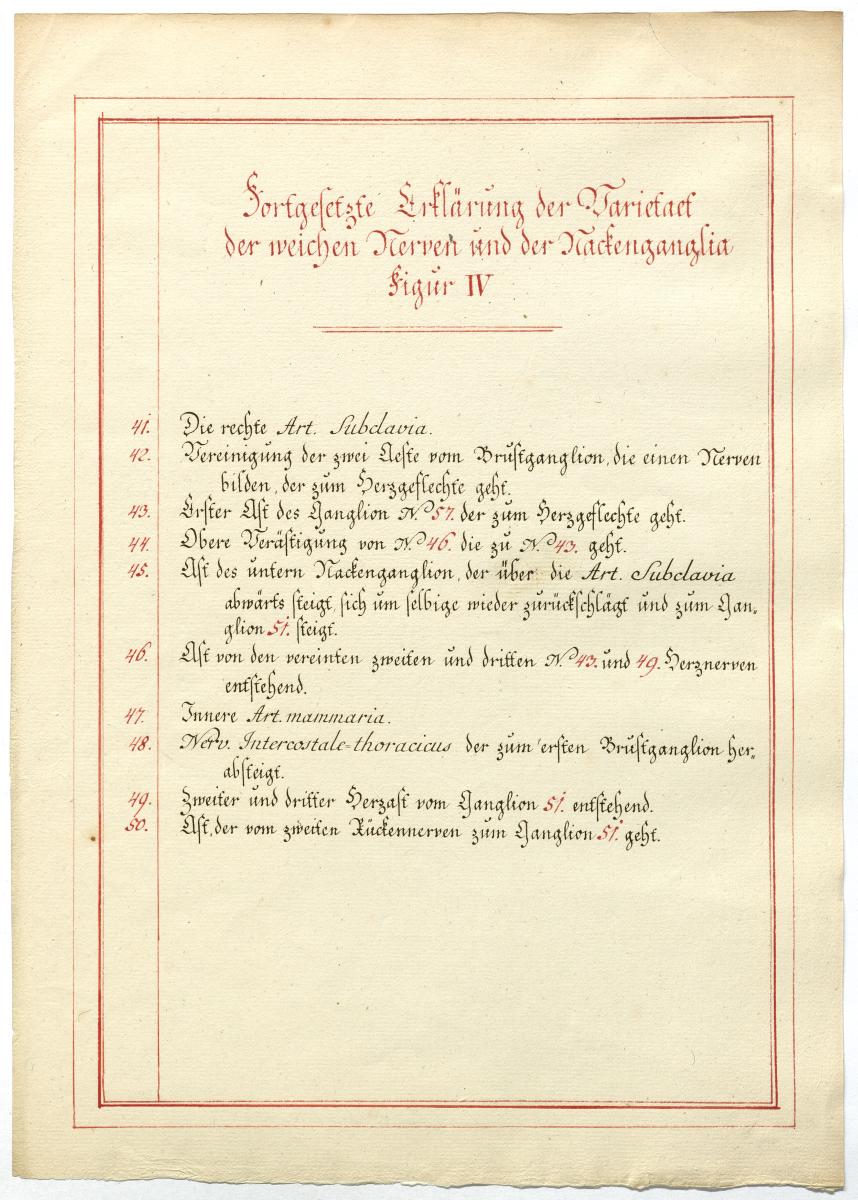 Fortgesetzte Erklärung der Varietaet
der weichen Nerven und der Nackenganglia
Figur IV
41. Die rechte Art. Subclavia.
42. Vereinigung der zwei Aeste vom Brustganglion, die einen Nerven
bilden, der zum Herzgeflechte geht.
43. Erster Ast des Ganglion No 57. der zum Herzgeflechte geht.
44. Obere Verästigung von No 46. die zu No 43. geht.
45. Ast des untern Nackenganglion, der über die Art. Subclavia
abwärts steigt, sich um selbige wieder zurückschlägt und zum Gan-
glion 51. steigt.
46. Ast von den vereinten zweiten und dritten No 43. und 49. Herznerven
entstehend.
47. Innere Art. mammaria.
48. Nerv. Intercostale-thoracicus der zum ersten Brustganglion her-
absteigt.
49. Zweiter und dritter Herzast vom Ganglion 51. entstehend.
50. Ast, der vom zweiten Rückennerven zum Ganglion 51. geht.